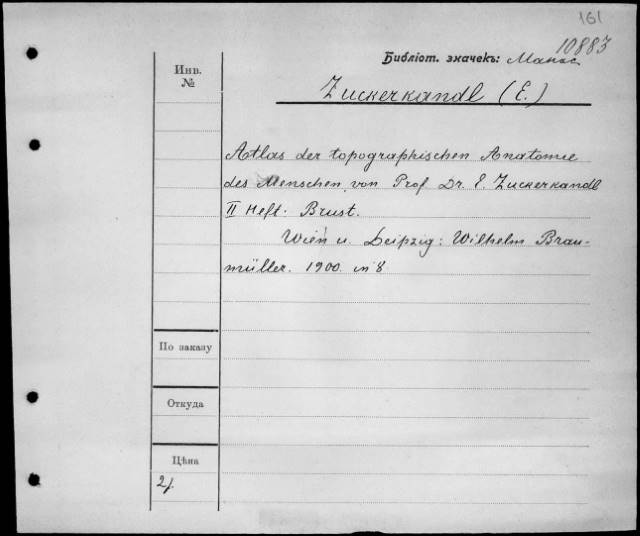 161
10883
Библіот. значекъ:
Инв.
№
Zuckerkandl (E.)
Atlas der topographischen Anatomie
des Menschen, von Prof. Dr. E. Zuckerkandl
II Heft. Brust.
Wien u. Leipzig: Wilhelm Brau-
müller. 1900. in 8
По заказу
Откуда
Цѣна